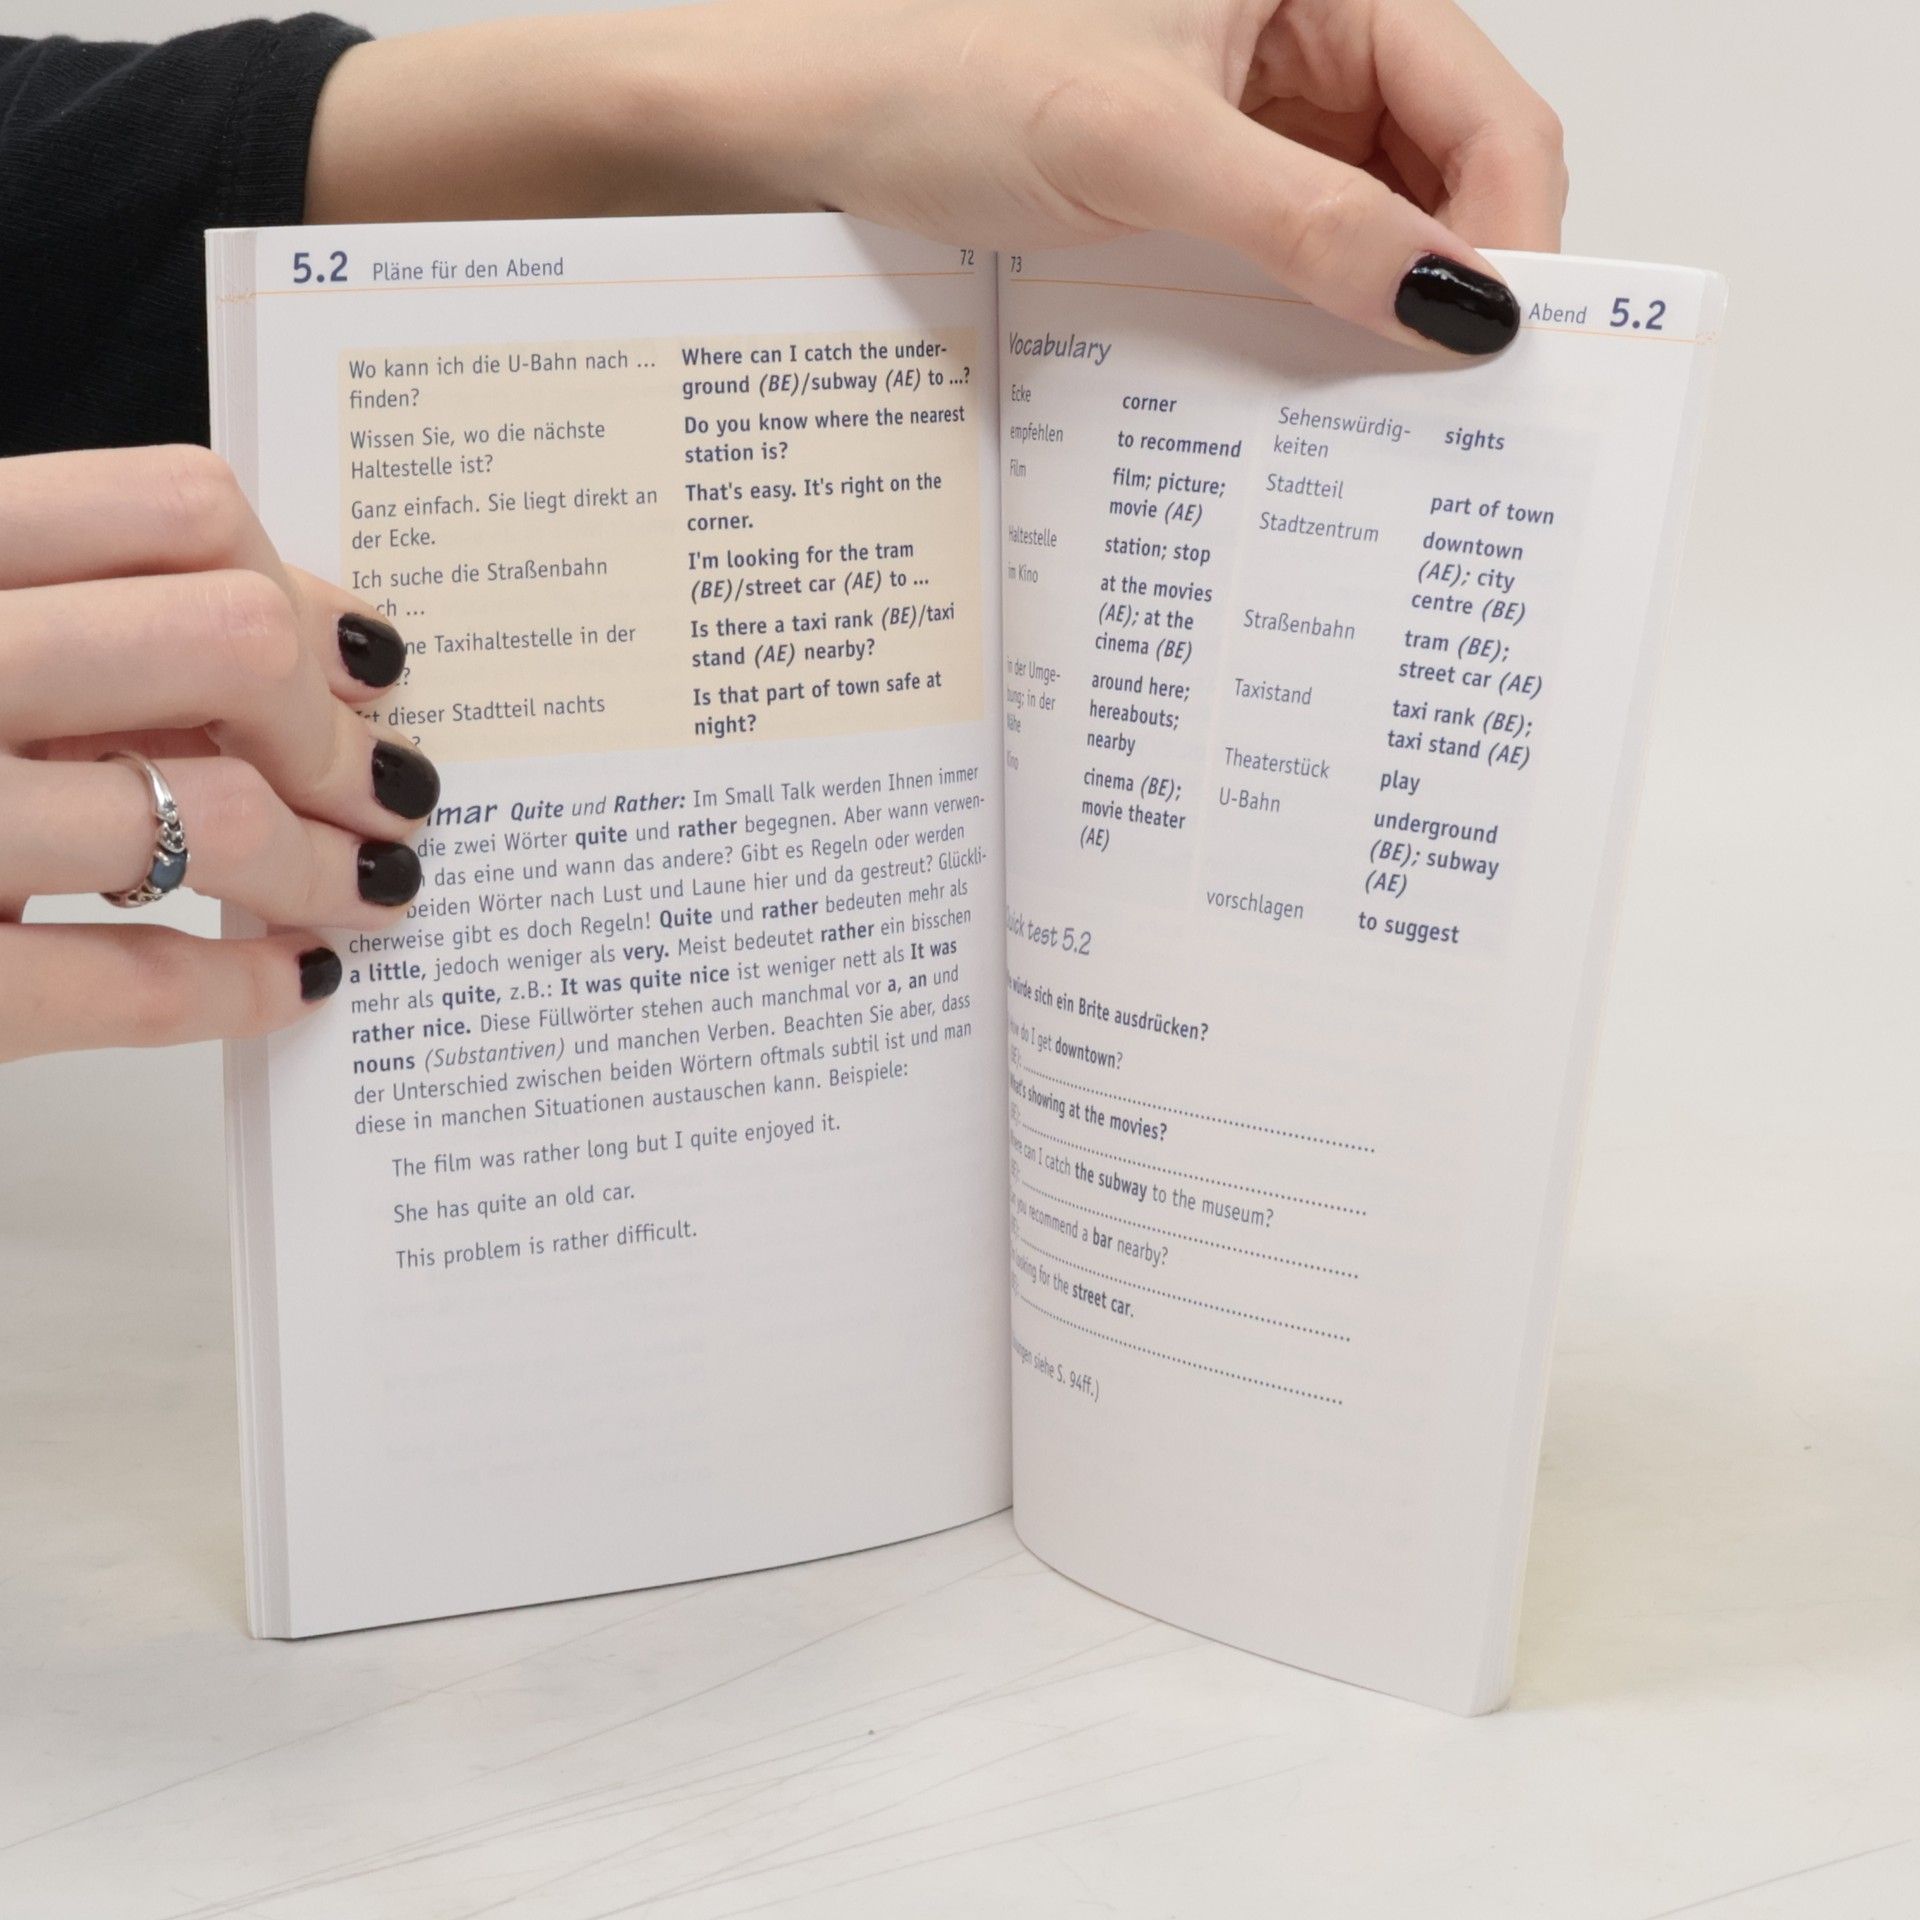 5.2 Pläne für den Abend 72
Wo kann ich die U-Bahn nach ...
finden?
Where can I catch the under-
ground (BE)/subway (AE) to ...?
Wissen Sie, wo die nächste
Haltestelle ist?
Do you know where the nearest
station is?
Ganz einfach. Sie liegt direkt an
der Ecke.
That's easy. It's right on the
corner.
Ich suche die Straßenbahn
...
I'm looking for the tram
(BE)/street car (AE) to ...
Taxihaltestelle in der
?
Is there a taxi rank (BE)/taxi
stand (AE) nearby?
dieser Stadtteil nachts
?
Is that part of town safe at
night?
Quite und Rather: Im Small Talk werden Ihnen immer
die zwei Wörter quite und rather begegnen. Aber wann verwen-
das eine und wann das andere? Gibt es Regeln oder werden
beiden Wörter nach Lust und Laune hier und da gestreut? Glückli-
cherweise gibt es doch Regeln! Quite und rather bedeuten mehr als
a little, jedoch weniger als very. Meist bedeutet rather ein bisschen
mehr als quite, z.B.: It was quite nice ist weniger nett als It was
rather nice. Diese Füllwörter stehen auch manchmal vor a, an und
nouns (Substantiven) und manchen Verben. Beachten Sie aber, dass
der Unterschied zwischen beiden Wörtern oftmals subtil ist und man
diese in manchen Situationen austauschen kann. Beispiele:
The film was rather long but I quite enjoyed it.
She has quite an old car.
This problem is rather difficult.
73 Abend 5.2
Vocabulary
Ecke corner
empfehlen to recommend
Film film; picture;
movie (AE)
Haltestelle station; stop
im Kino at the movies
(AE); at the
cinema (BE)
in der Umge- around here;
bung; in der hereabouts;
Nähe nearby
Kino cinema (BE);
movie theater
(AE)
Sehenswürdig- sights
keiten
Stadtteil part of town
Stadtzentrum downtown
(AE); city
centre (BE)
Straßenbahn tram (BE);
street car (AE)
Taxistand taxi rank (BE);
taxi stand (AE)
Theaterstück play
U-Bahn underground
(BE); subway
(AE)
vorschlagen to suggest
test 5.2
würde sich ein Brite ausdrücken?
do I get downtown?
(BE):
What's showing at the movies?
(BE):
can I catch the subway to the museum?
(BE):
you recommend a bar nearby?
(BE):
looking for the street car.
(BE):
siehe S. 94ff.)